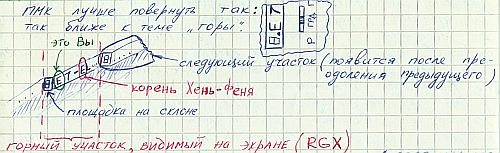 ПМК лучше повернуть так:
так ближе к теме „горы".
8.Е7
Р ГРД Г
это Вы
следующий участок (появится после пре-
одоления предыдущего)
8 Е 7 - 8
корень Хень-Феня
площадка на склоне
горный участок, видимый на экране (RGX)